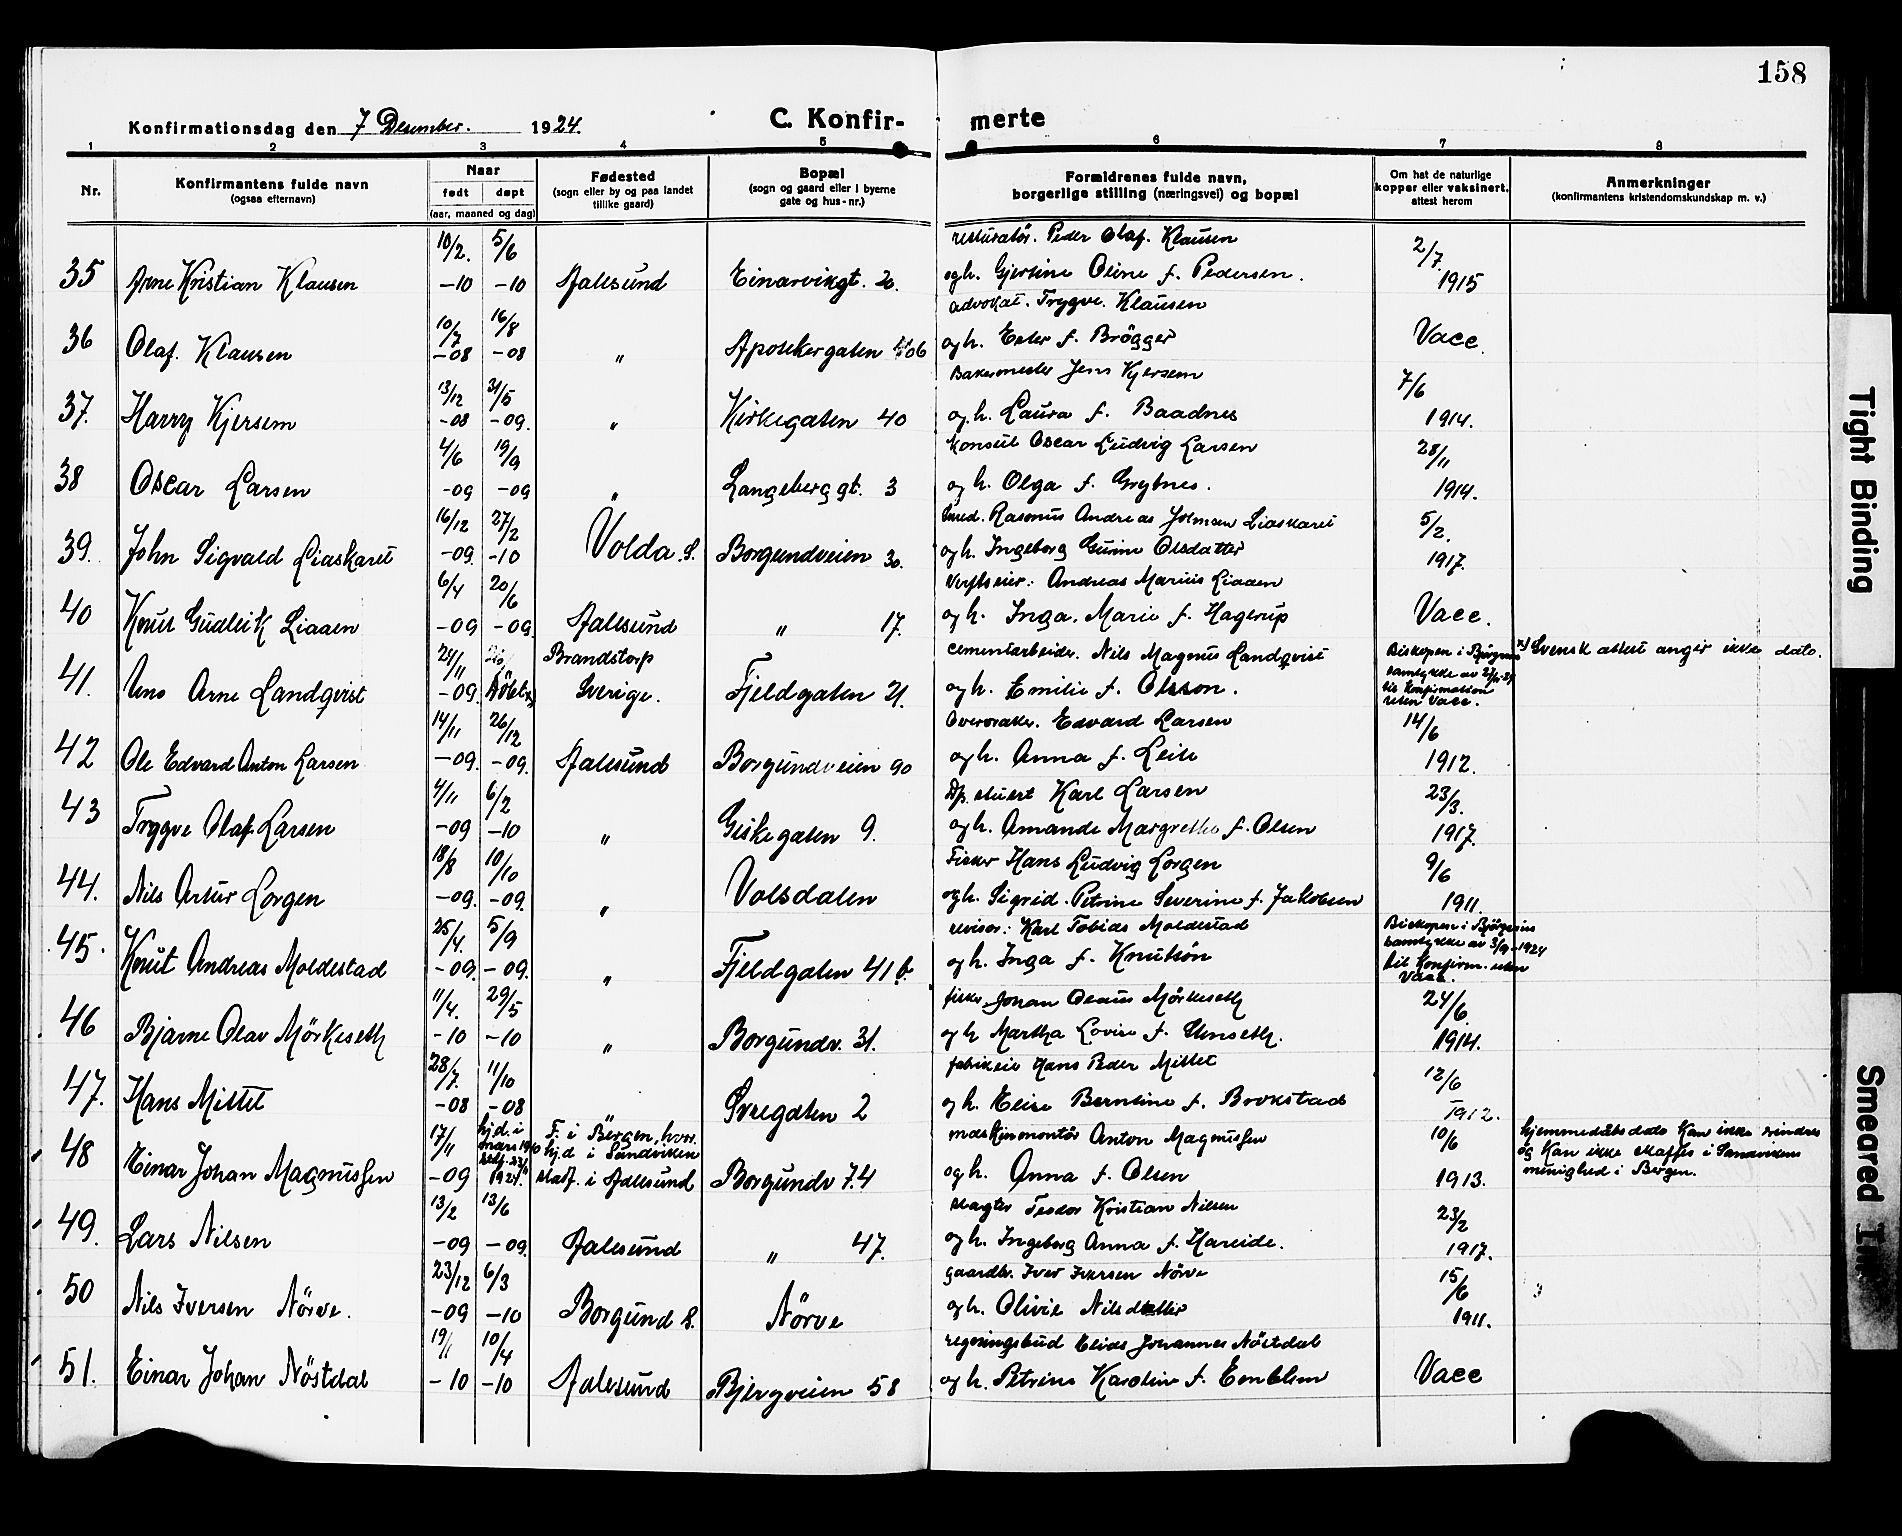 158
Konfirmationsdag den 7 Desember. 1924. C. Konfir- merte
1 2 3 4 5 6 7 8
Nr. Konfirmantens fulde navn (ogsaa efternavn) Naar født døpt (aar, maaned og dag) Fødested (sogn eller by og paa landet tillike gaard) Bopæl (sogn og gaard eller i byerne gate og hus-nr.) Forældrenes fulde navn, borgerlige stilling (næringsvei) og bopæl Om hat de naturlige kopper eller vaksinert, attest herom Anmerkninger (konfirmantens kristendomskundskap m. v.)
10/2. 5/6 Peder Olaf. Klausen 2/7.
35 Arne Kristian Klausen -10 -10 Aalesund Einarvikgt. 20. og h. Gjertine Oline f. Pedersen. 1915
10/7 16/8 advokat. Trygve. Klausen
36 Olaf. Klausen -08 -08 " Apotekergaten og h. Ester f. Brögger Vacc.
13/12 31/5 Bakermester Jens Kjersem 7/6
37. Harry Kjersem -08 -09. " Kirkegaten 40 og h. Laura f. Baadnes 1914.
4/6 19/9 Konsul Oscar Ludvig Larsen 28/11
38 Oscar Larsen -09 -09 " Langeberggt. 3 og h. Olga f. Grytnes. 1914.
16/12 27/2 Smed. Rasmus Andreas Johnsen Liaskaret 5/2.
39. John Sigvald Liaskaret -09. -10 Volda. S. Borgundveien 30. og h. Ingeborg Gurine Olsdatter 1917.
6/4 20/6 Verftseier: Andreas Marius Liaaen
40 Knut Gudleik Liaaen -09 -09. Aalesund " 17. og h. Inga. Marie f. Hagerup Vacc.
24/11 Brandstorp cementarbeider. Nils Magnus Landqvist Biskopen i Bjørgvins x) Svensk attest angir ikke dato.
41. Uno Arne Landqvist -09. Sverige. Fjeldgaten 21. og h. Emilie f. Olsson. samtykke av til Konfirmation uten Vacc.
14/11 26/12 Edvard Larsen 14/6
42 Ole Edvard Anton Larsen -09. -09. Aalesund Borgundveien 90 og h. Anna f. Leite 1912.
4/11 6/2 Karl Larsen 23/3.
43 Trygve Olaf Larsen -09 -10 " Giskegaten 9. og h. Amanda Margrethe f. Olsen 1917.
18/8 10/10 Fisker Hans Ludvig Lorgen 9/6
44. Nils Artur Lorgen -09. -09. " Volsdalen og h. Sigrid. Petrine Severine f. Jakobsen 1911.
25/4. 5/9 revisor: Karl Tobias Moldestad Biskopen i Bjørgvins samtykke av 3/9-1924
45. Knut Andreas Moldestad -09. -09. " Fjeldgaten 41 b. og h. Inga f. Knutson til Konfirm. uten Vacc.
11/4. 29/5 fisker Johan Olaus Mörkeseth 24/6.
46 Bjarne Olav Mörkeseth -10 -10 " Borgundv. 31. og h. Martha Lovise f. 1914.
28/7. 11/10 Hans Peder Mittet 12/6
47. Hans Mittet -08 -08 " Sveegaten 2 og h. Elise Berntine f. Brokstad 1912.
17/11 hjd. i mars 1910 F. i Bergen, hvor. hjd i Sandviken maskinmontör Anton Magnussen 10/6 hjemmedåbsdato kan ikke erindres
48 Einar Johan Magnussen -09 1924. stadf. i Aalesund Borgundv 74 og h. Anna f. Olsen 1913. og kan ikke skaffes i Sandvikens menighed i Bergen.
13/2 13/6 slagter Teodor Kristian Nilsen 23/2
49. Lars Nilsen -09 -09. Aalesund " 47. og h. Ingeborg Anna f. Hareide. 1917.
23/12 6/3 gaardbr. Iver Iversen Nörve 15/6
50 Nils Iversen Nörve. -09 -10 Borgund S. Nörve og h. Olivie Nilsdatter 1911.
19/1 10/4 regningsbud Elias Johannes Nöstdal
51. Einar Johan Nöstdal -10 -10 Aalesund Bjergveien 58 og h. Petrine Karoline f. Emblem Vacc
Tight Binding
Smeared Ink